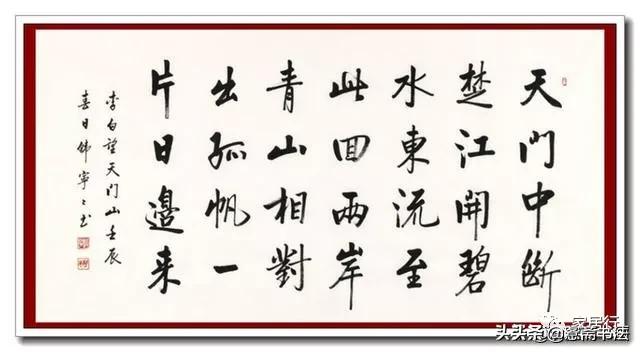 天門中斷
楚江開碧
水東流至
此回兩岸
青山相對
出孤帆一
片日邊来
李白望天门山壬辰
喜日韩寧〻书
家居行
头条
书法